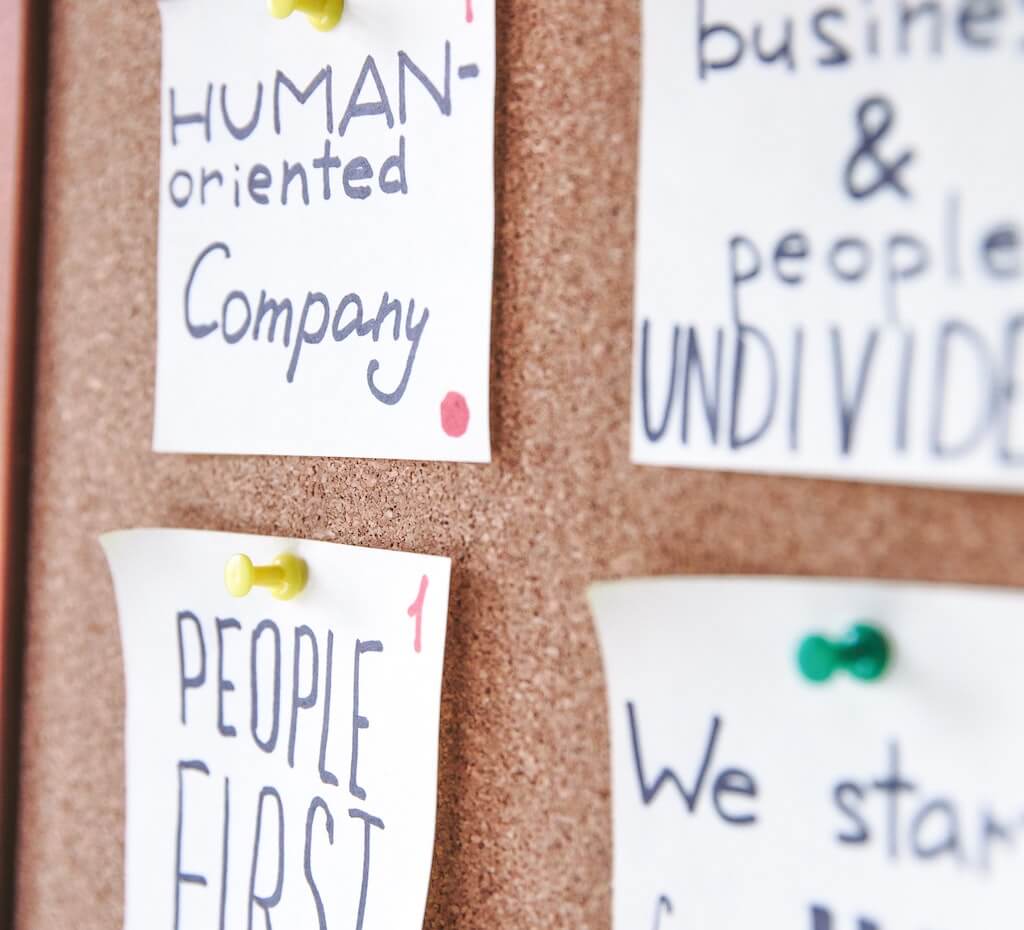 HUMAN-
oriented
Company
busines
&
people
UNDIVIDE
1
PEOPLE
FIRST
We star